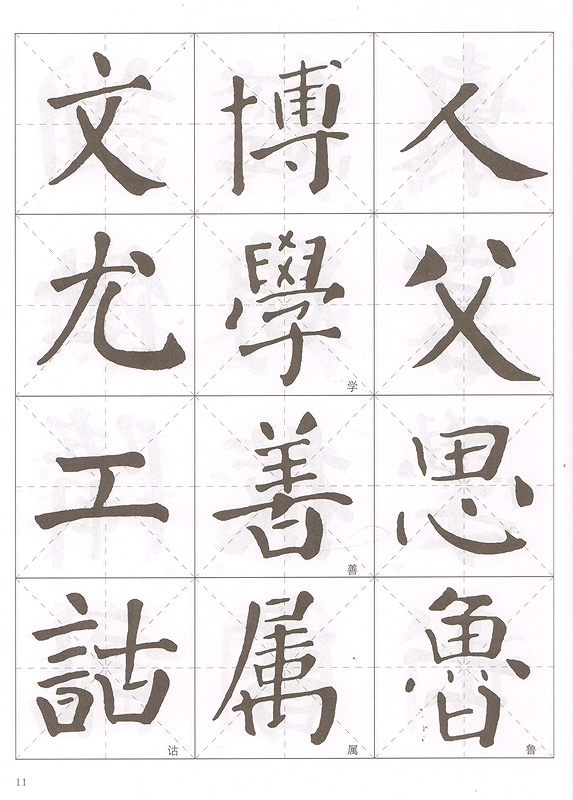 人父思魯
鲁
博學善属
学
善
属
文尤工詁
诂
11